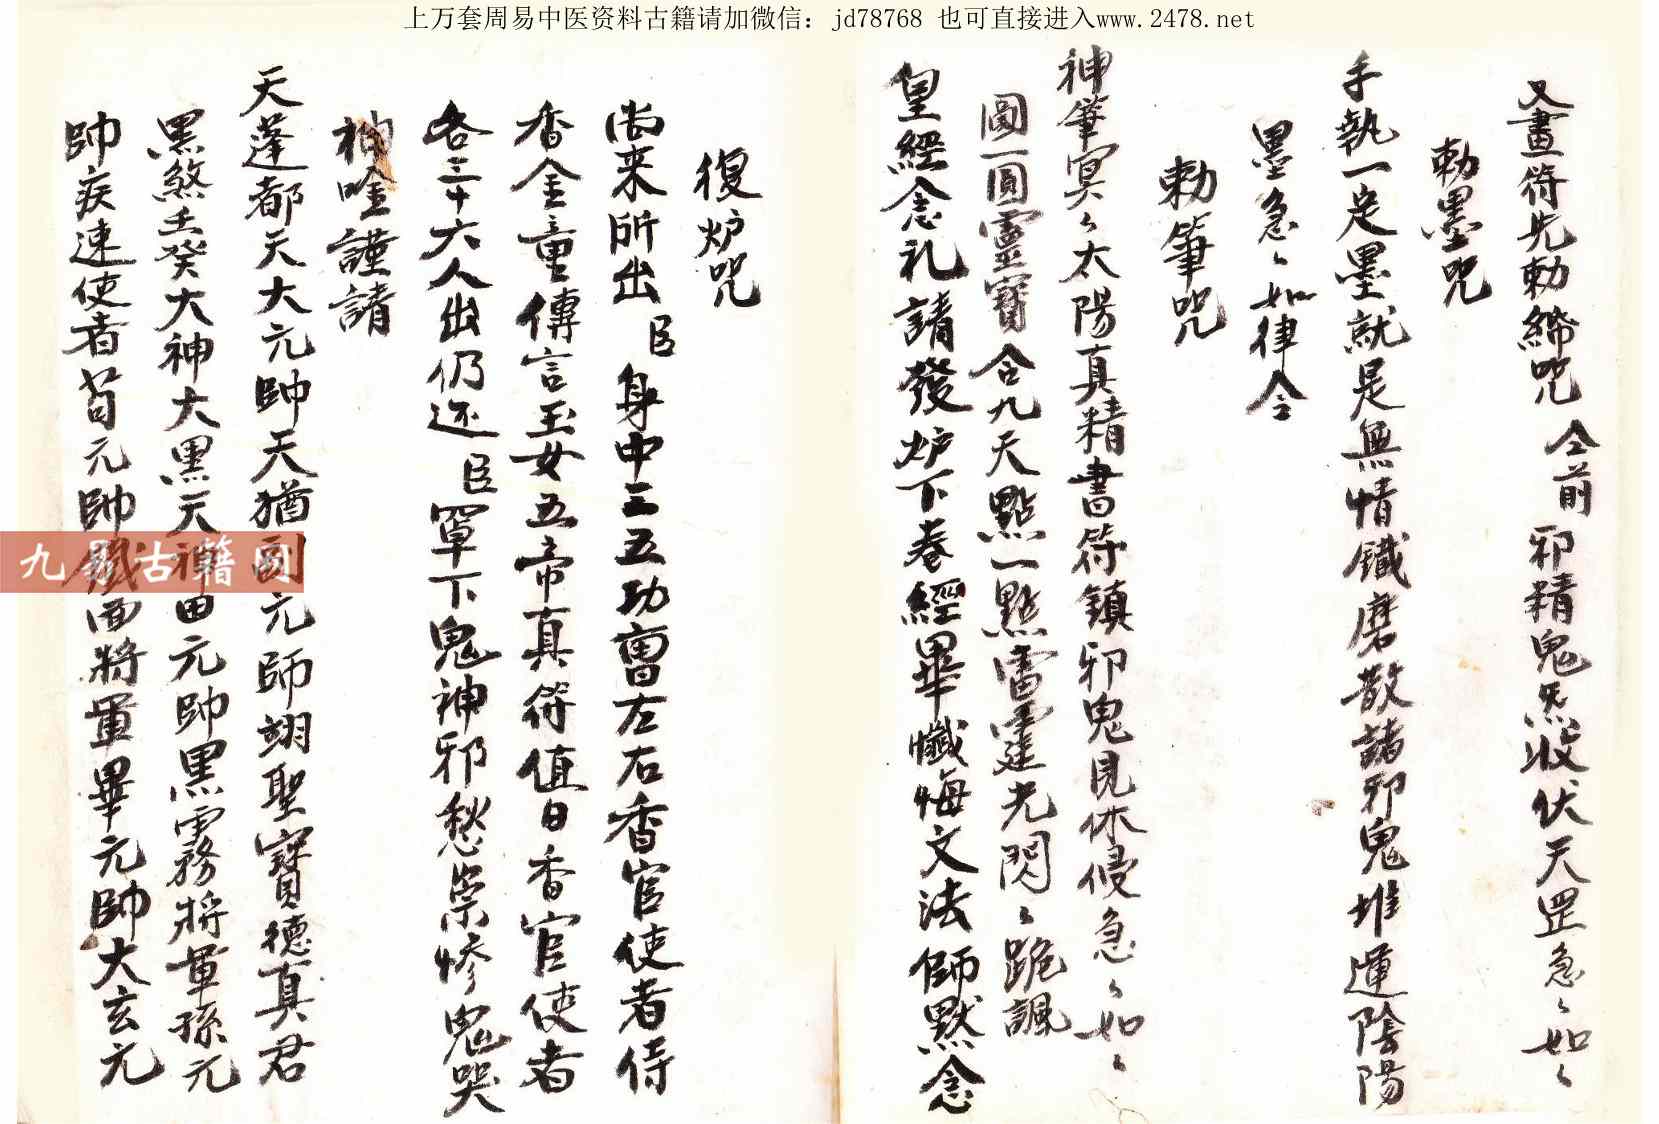 上万套周易中医资料古籍请加微信：jd78768 也可直接进入www.2478.net
又畫符先勅締咒 全前 邪精鬼炁收伏天罡急々如々
勅墨咒
手執一是墨就是無情鐵磨散諸邪鬼堆運陰陽
墨急々如律令
勅筆咒
神筆冥々太陽真精書符鎮邪鬼見休侵急々如々
圓一圓靈寶合九天點一點雷霆光閃々跪諷
皇經念礼請發炉下卷經畢懺悔文法師默念
復炉咒
尚来所出 臣 身中三五功曹左右香官使者侍
香金童傳言玉女五帝真符值日香官使者
各三十六人出仍还 臣 罩下鬼神邪愁祟慘鬼哭
神唫謹請
天蓬都天大元帥天猶副元師翊聖寶德真君
黑煞壬癸大神大黑天神田元帥黑霧將軍孫元
帥疾速使者苟元帥鐵面將軍畢元帥大玄元
九易古籍网